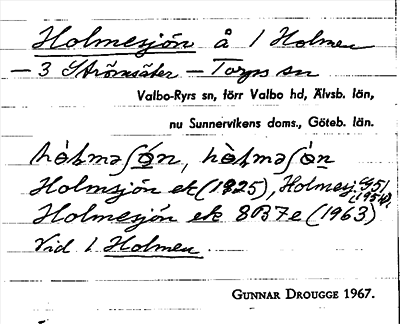 Holmesjön å 1 Holmen
— 3 Strömsäter — Torps sn
Valbo-Ryrs sn, förr Valbo hd, Älvsb. län,
nu Sunnervikens doms., Göteb. län.
Holmsjön ek (1925), Holmesj. G51
(1951),
Holmesjön ek 8B7e (1963)
Vid 1. Holmen.
GUNNAR DROUGGE 1967.